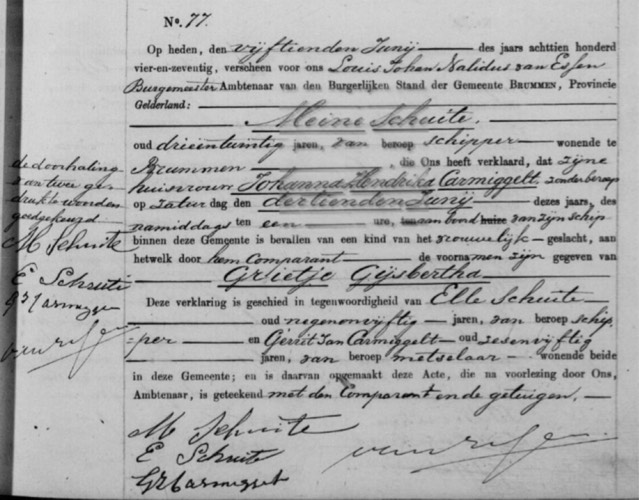 No. 77.
Op heden, den vijftienden Junij des jaars achttien honderd
vier-en-zeventig, verscheen voor ons Louis Johan Natidus van Essen
Burgemeester Ambtenaar van den Burgerlijken Stand der Gemeente BRUMMEN, Provincie
Gelderland:
Meine Schuite.
oud drieëntwintig jaren, van beroep schipper wonende te
Brummen, die Ons heeft verklaard, dat zijne
huisvrouw Johanna Hendrika Carmiggelt, zonder beroep
op Zaturdag den dertienden Junij dezes jaars, des
namiddags ten een ure, ten aan boord huize van zijn schip
binnen deze Gemeente is bevallen van een kind van het vrouwelijk geslacht, aan
hetwelk door hem Comparant de voornamen zijn gegeven van
Grietje Gijsbertha
Deze verklaring is geschied in tegenwoordigheid van Elle Schuite
oud negenenvijftig jaren, van beroep schip
=per en Gerrit Jan Carmiggelt oud zesenvijftig
jaren, van beroep metselaar wonende beide
in deze Gemeente; en is daarvan opgemaakt deze Acte, die na voorlezing door Ons,
Ambtenaar, is geteekend met den Comparant en de getuigen.
M Schuite
E Schuite
GJ Carmiggelt
van Essen
de doorhaling
van twee ge=
drukte woorden
goedgekeurd
M Schuite
E Schuite
GJ Carmiggelt
van Essen